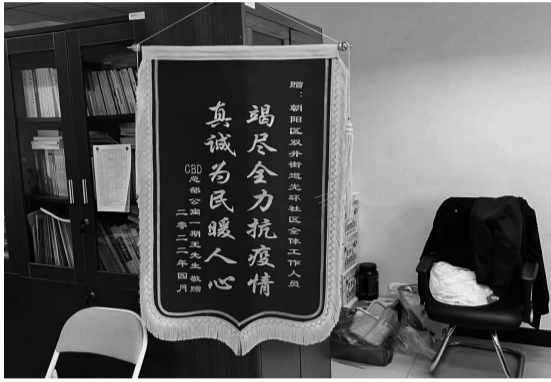 赠：朝阳区双井街道光环社区全体工作人员
竭尽全力抗疫情
真诚为民暖人心
CBD总部公寓一期王先生敬赠
二零二二年四月